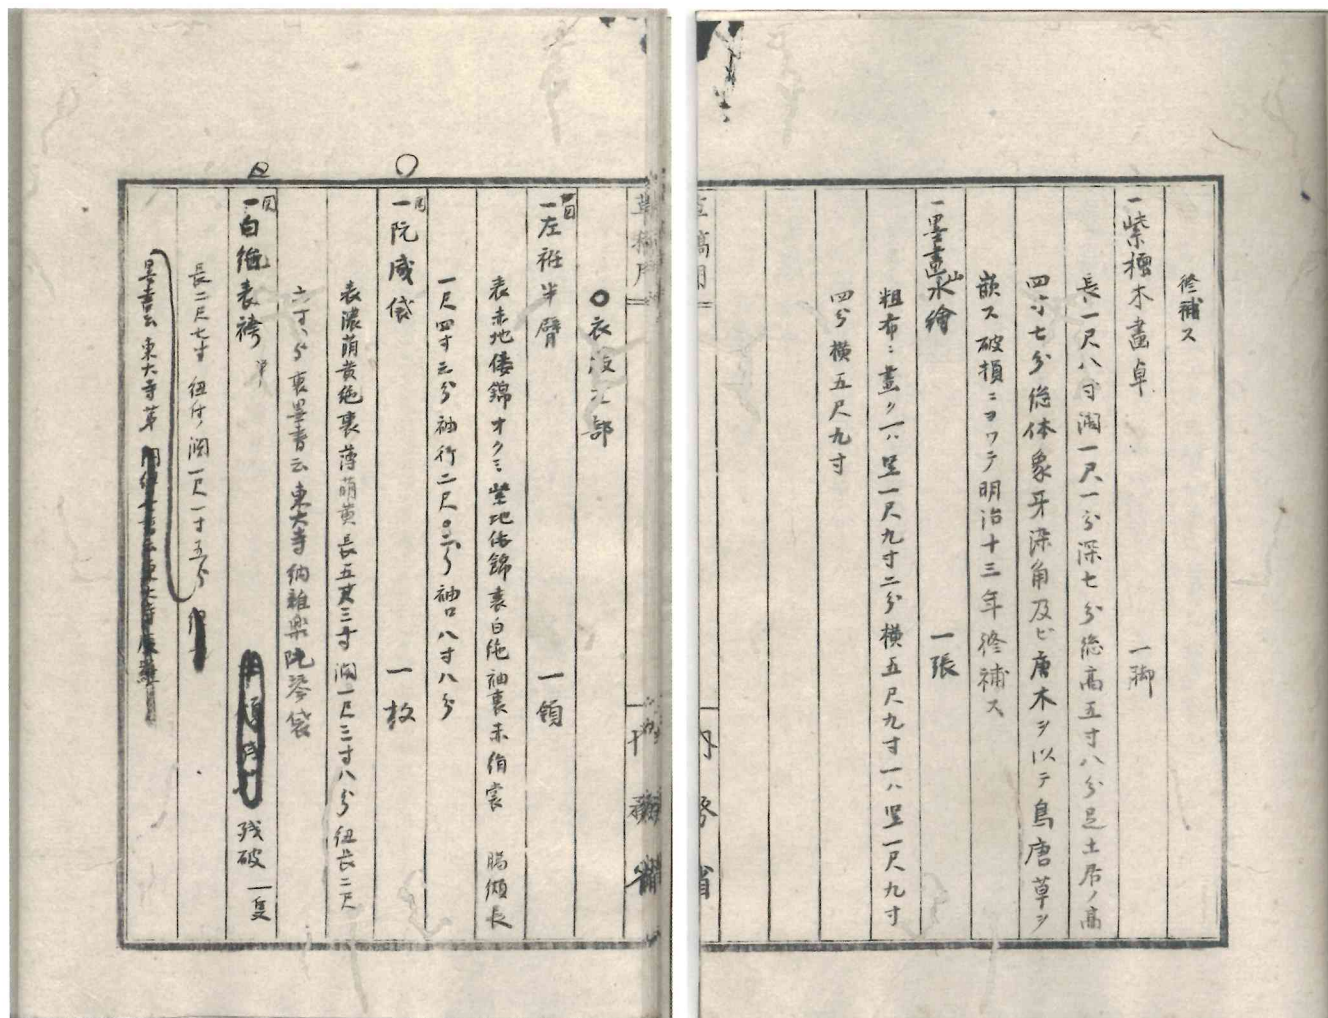 修補ス
一紫檀木畫卓 一脚
長一尺八寸濶一尺一分深七分總高五寸八分足土居ノ高
四寸七分總体象牙染角及ビ唐木ヲ以テ鳥唐草ヲ
嵌ス破損ニヨツテ明治十三年修補ス
一墨畫山水繪 一張
粗布ニ畫ク一ハ竪一尺九寸二分横五尺九寸一ハ竪一尺九寸
四分横五尺九寸
草稿用
内務省
○衣服之部
一左袵半臂 一領
表赤地倭錦オクミ紫地倭錦裏白絁袖裏赤 﨟纈長
一尺四寸三分袖行二尺○二分袖口八寸八分
一阮咸袋 一枚
表濃萌黄絁裏薄萌黄長五尺三寸濶一尺三寸八分紐長二尺
六寸八分裏墨書云東大寺納雅樂阮琴袋
一白絁表袴 残破一隻
長二尺七寸紐付濶一尺一寸五分
墨書云東大寺